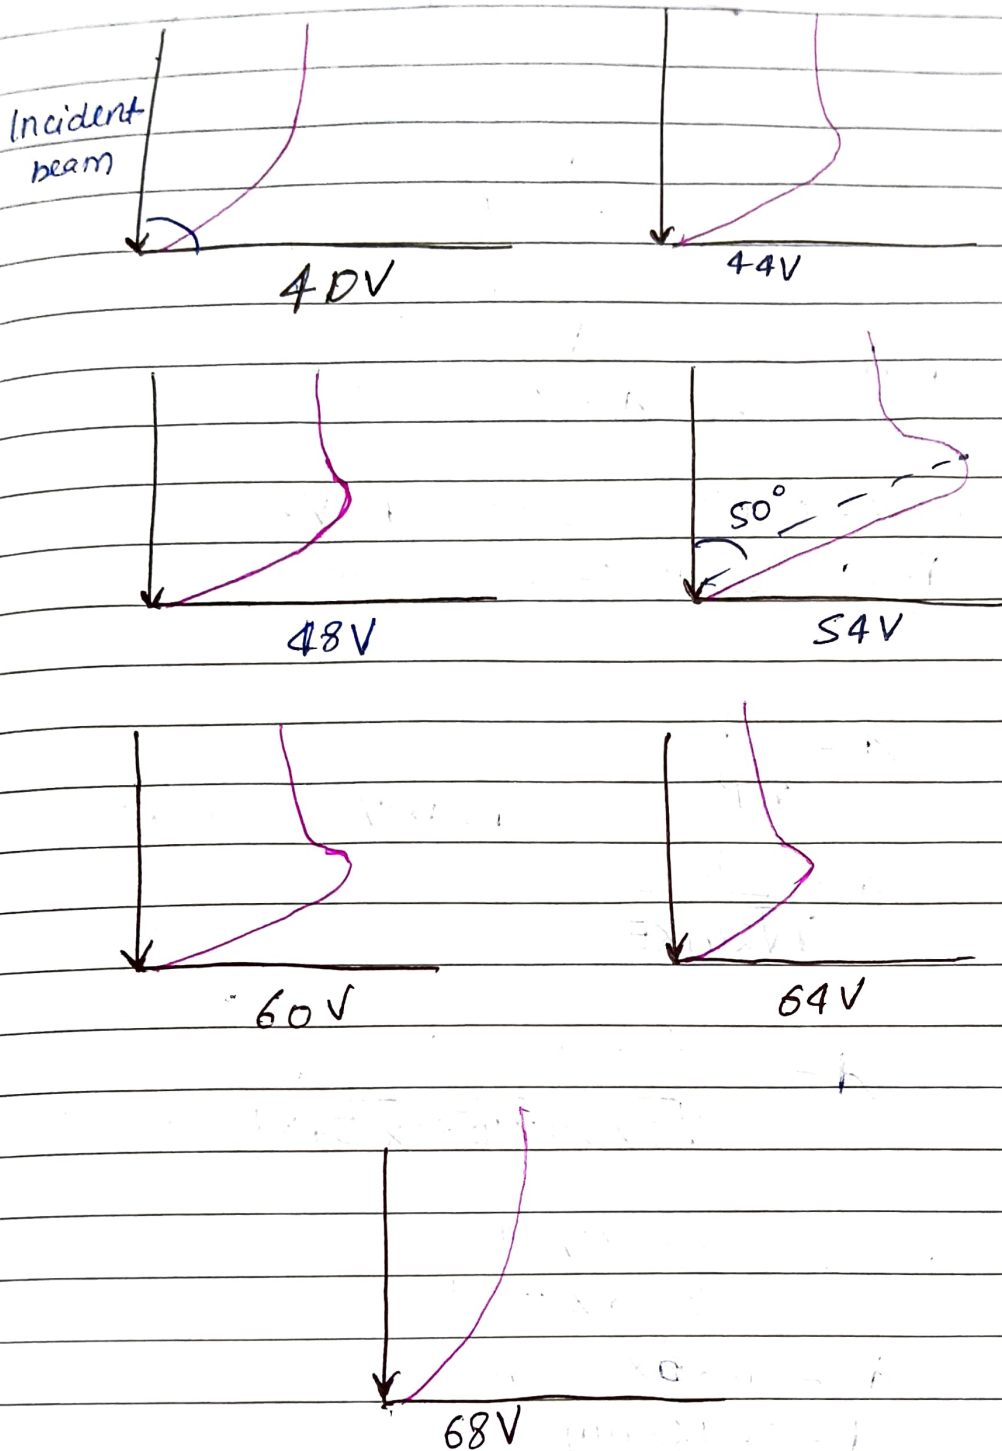 Incident
beam
40V
44V
48V
50°
54V
60V
64V
68V